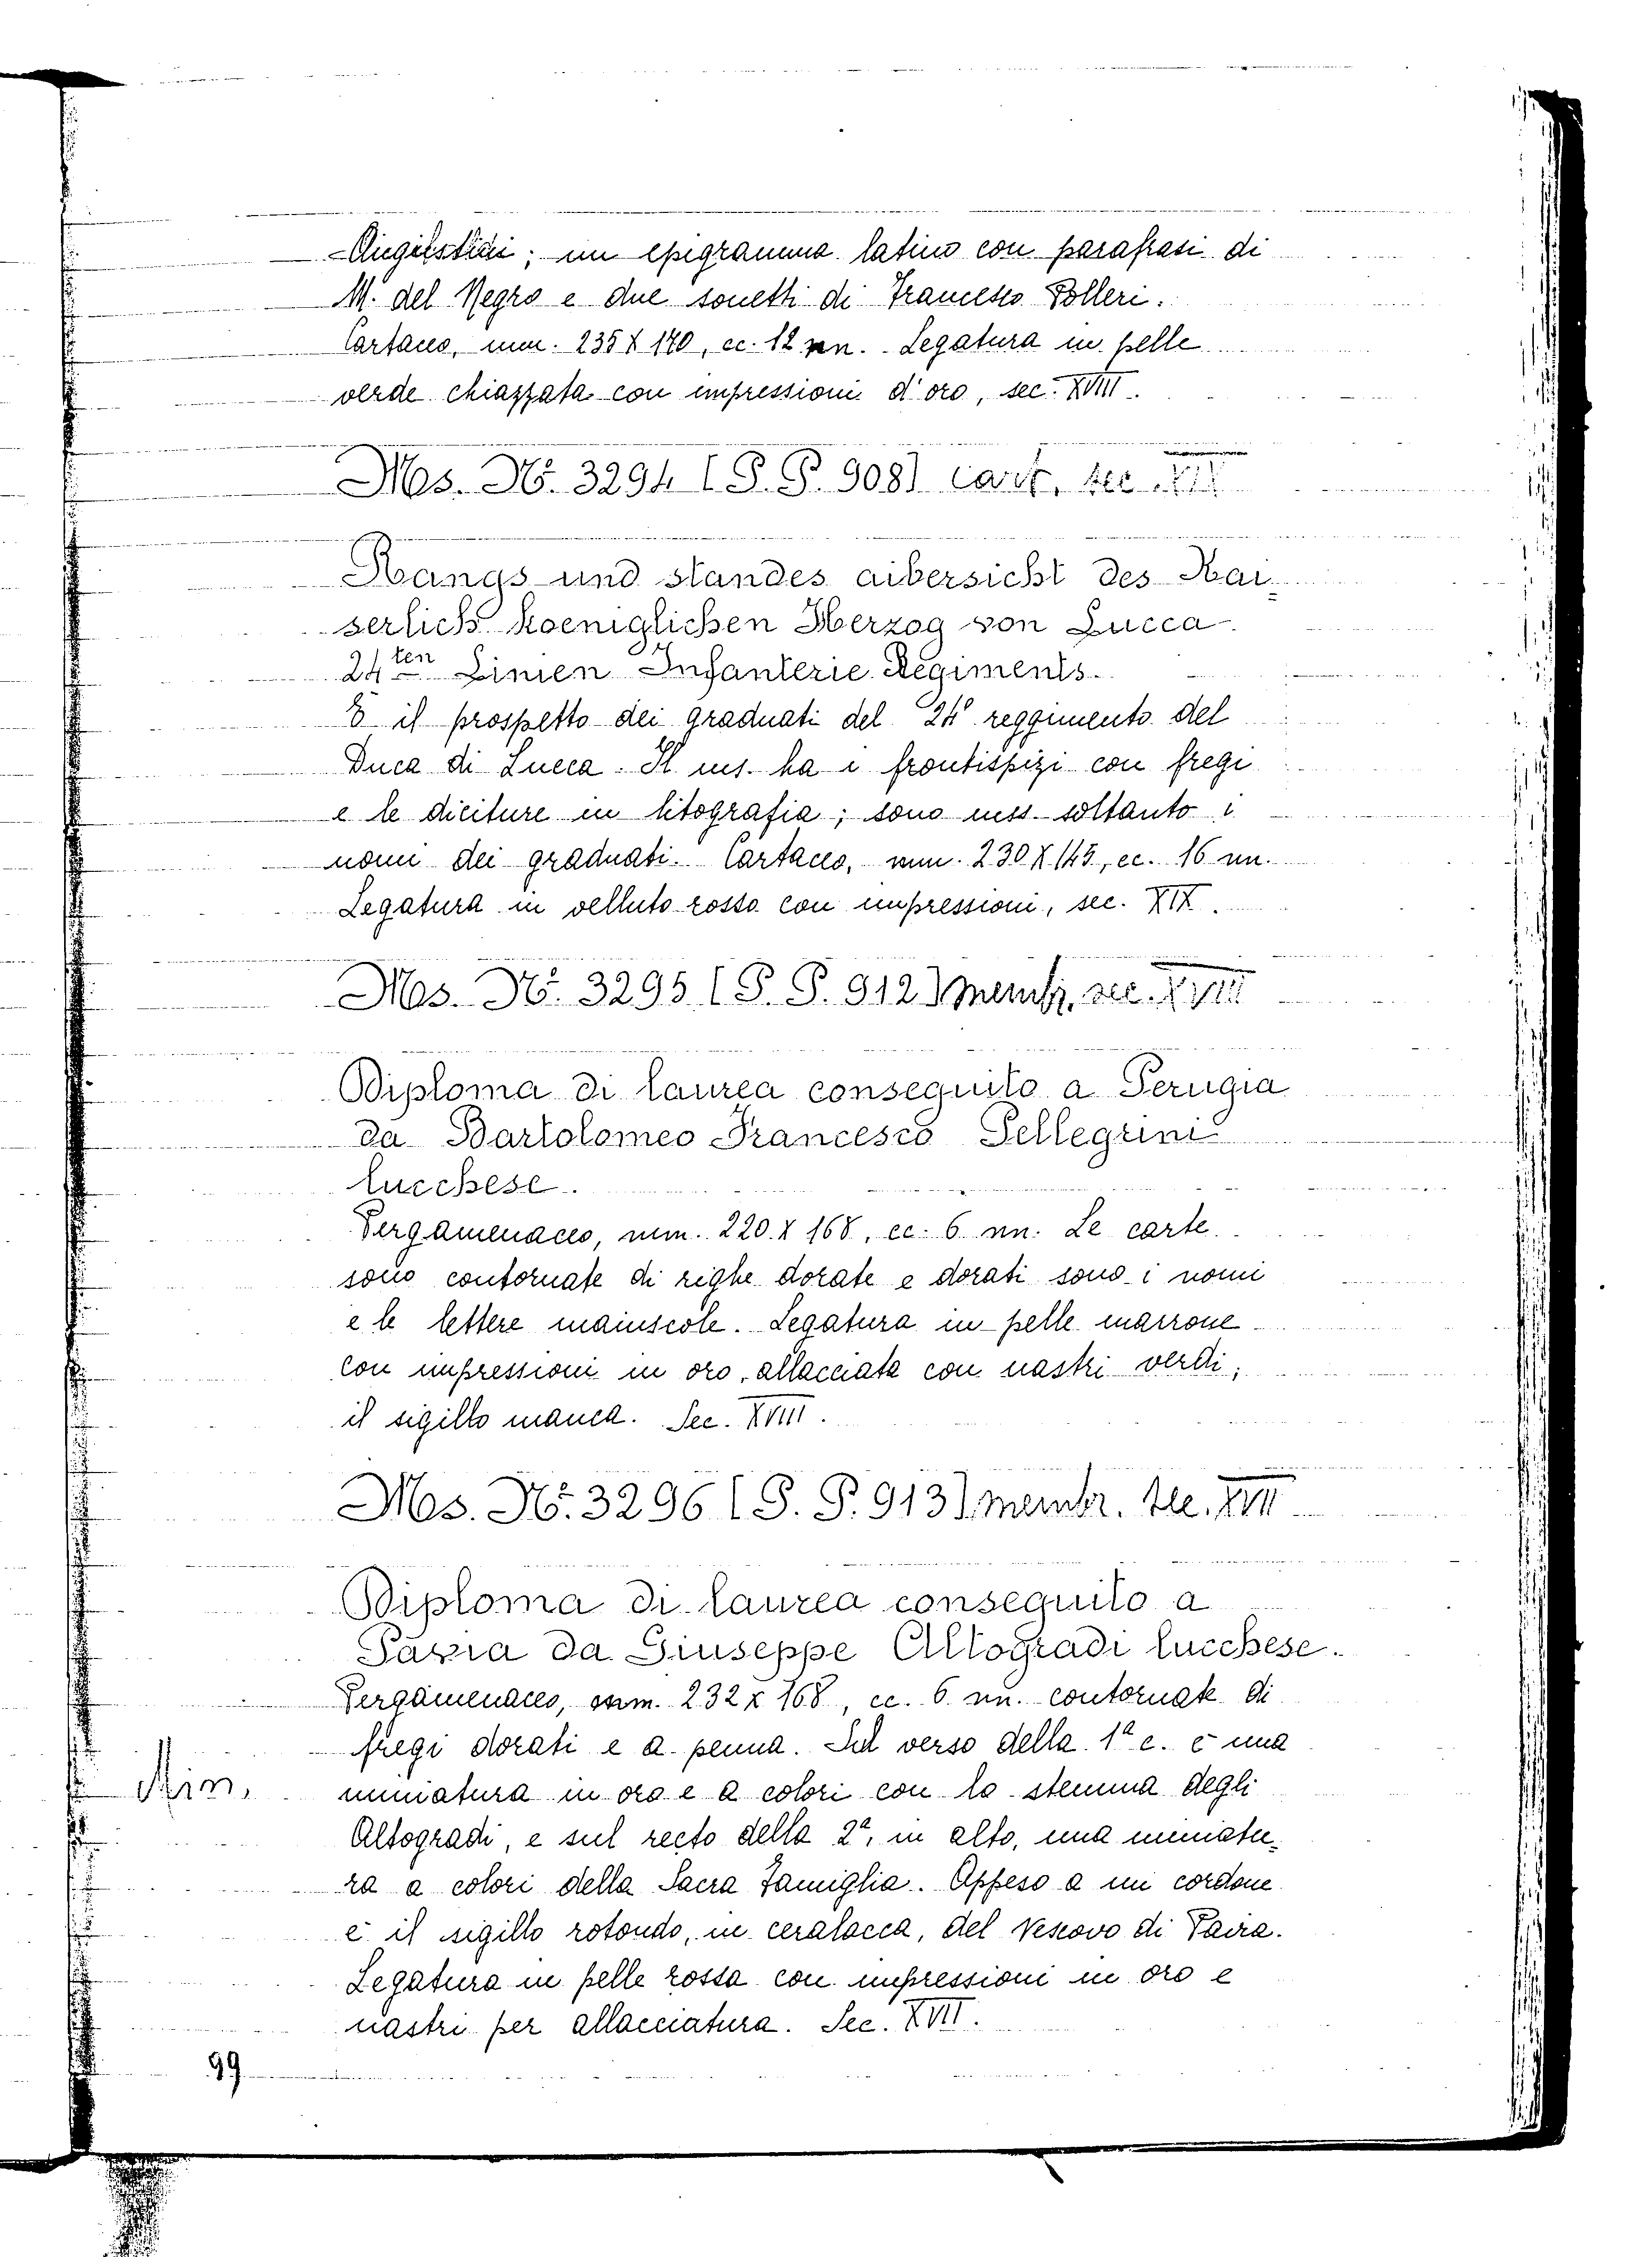 Angiolstini; un epigramma latino con parafrasi di
M. del Negro e due sonetti di Francesco Polleri.
Cartaceo, mm. 235 X 170, cc. 12 nn. Legatura in pelle
verde chiazzata con impressioni d'oro, sec. XVIII.
Mss. N.° 3294 (S. P. 908) cart. sec. XIX
Rangs und standes aibersicht des Kai-
serlich koeniglichen Herzog von Lucca
24ten Linien Infanterie Regiments.
È il prospetto dei graduati del 24° reggimento del
Duca di Lucca. Il ms. ha i frontispizi con fregi
e le diciture in litografia; sono mss. soltanto i
nomi dei graduati. Cartaceo, mm. 230 X 145, cc. 16 nn.
Legatura in velluto rosso con impressioni, sec. XIX.
Mss. N.° 3295 (S. P. 912) membr. sec. XVIII
Diploma di laurea conseguito a Perugia
da Bartolomeo Francesco Pellegrini
lucchese.
Pergamenaceo, mm. 220 X 168, cc. 6 nn. Le carte
sono contornate di righe dorate e dorati sono i nomi
e le lettere maiuscole. Legatura in pelle marrone
con impressioni in oro, allacciata con nastri verdi;
il sigillo manca. Sec. XVIII.
Mss. N.° 3296 (S. P. 913) membr. sec. XVII
Diploma di laurea conseguito a
Pavia da Giuseppe Altogradi lucchese.
Pergamenaceo, mm. 232 x 168, cc. 6 nn. contornate di
fregi dorati e a penna. Sul verso della 1ª c. è una
Min. miniatura in oro e a colori con lo stemma degli
Altogradi, e sul recto della 2ª, in alto, una miniatu-
ra a colori della Sacra Famiglia. Appeso a un cordone
è il sigillo rotondo, in ceralacca, del Vescovo di Pavia.
Legatura in pelle rossa con impressioni in oro e
nastri per allacciatura. Sec. XVII.
99